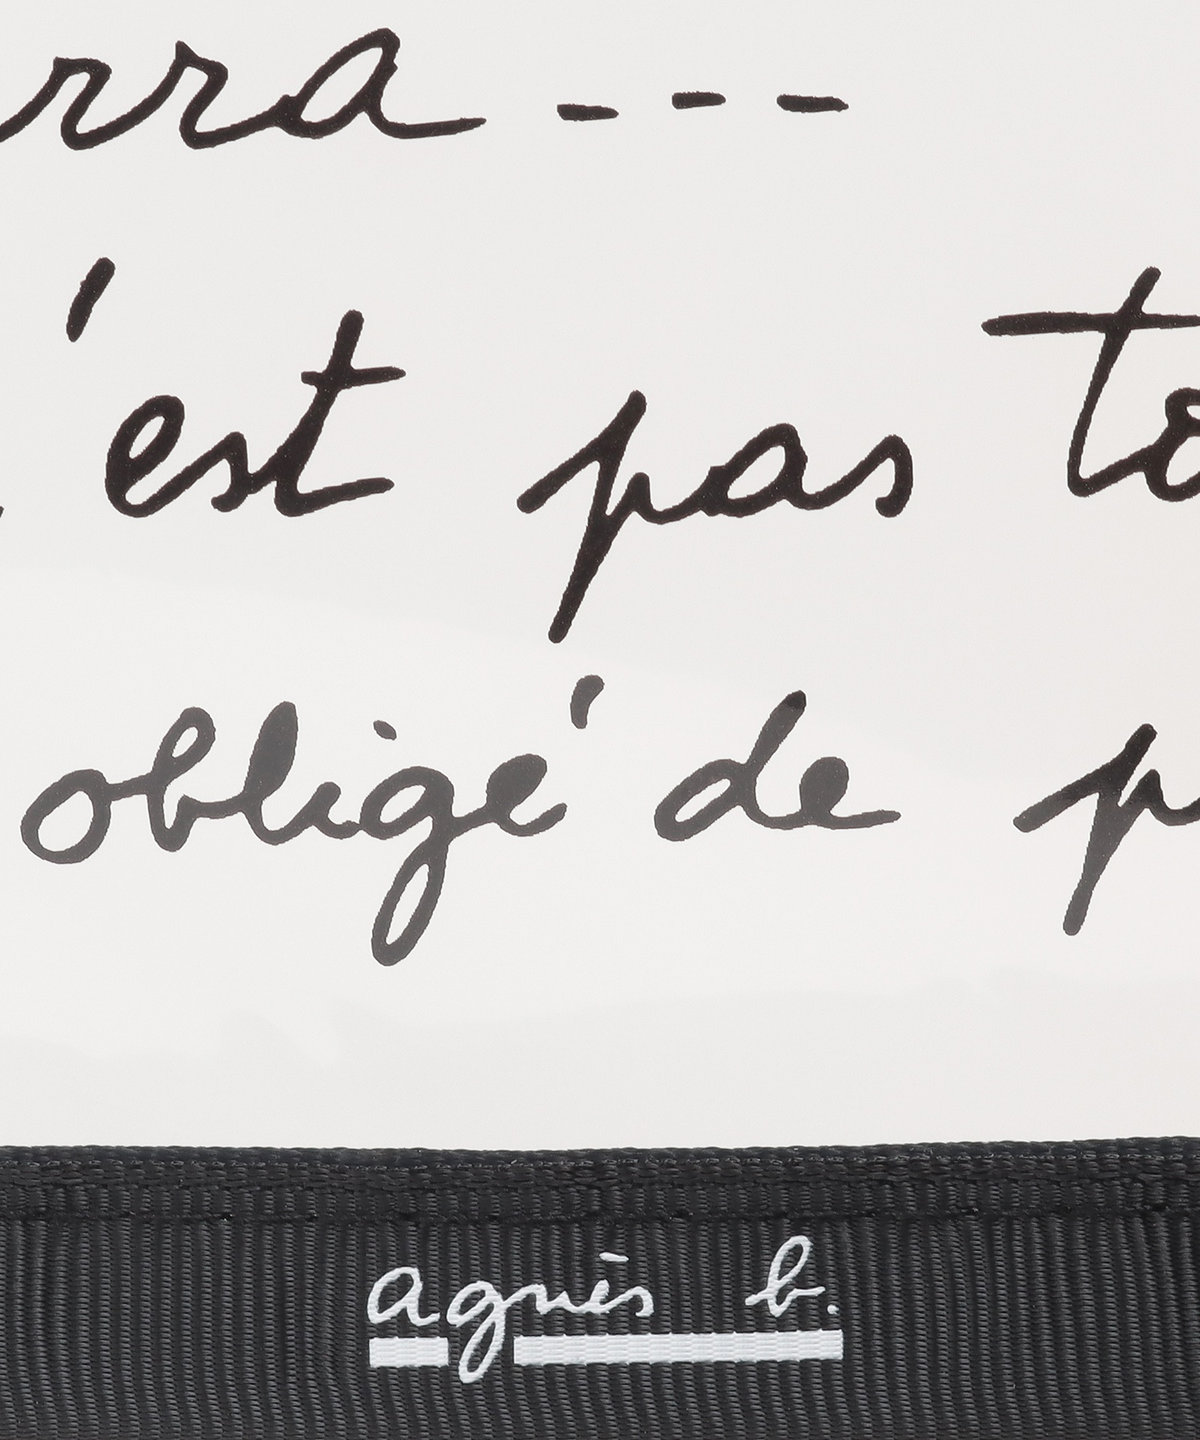 rra - - -
'est pas to
obligé de p
agnès b.